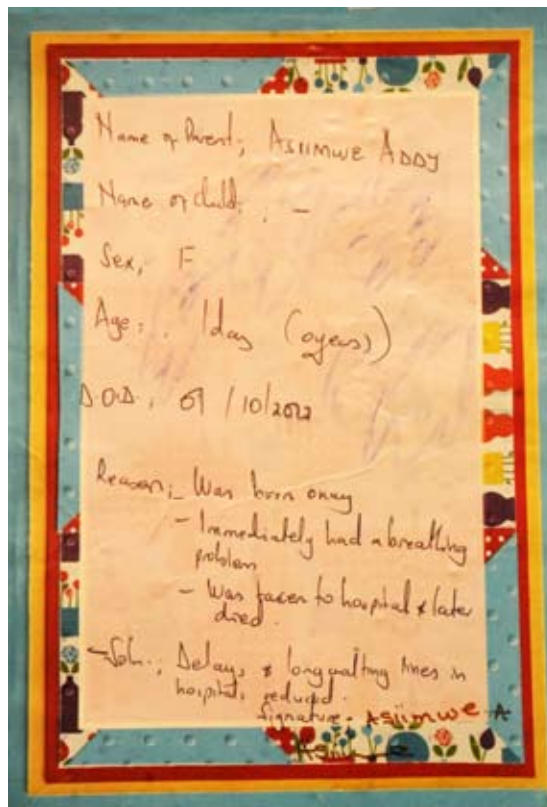 Name of Parent; ASIIMWE ADDY
Name of child; -
Sex, F
Age: . 1day (0years)
D.O.D, 09 /10/2012
Reason;- Was born okay
- Immediately had a breathing
problem
- Was taken to hospital & later
died.
-Soln.; Delays & long waiting lines in
hospitals reduced.
Signature - ASIIMWE A